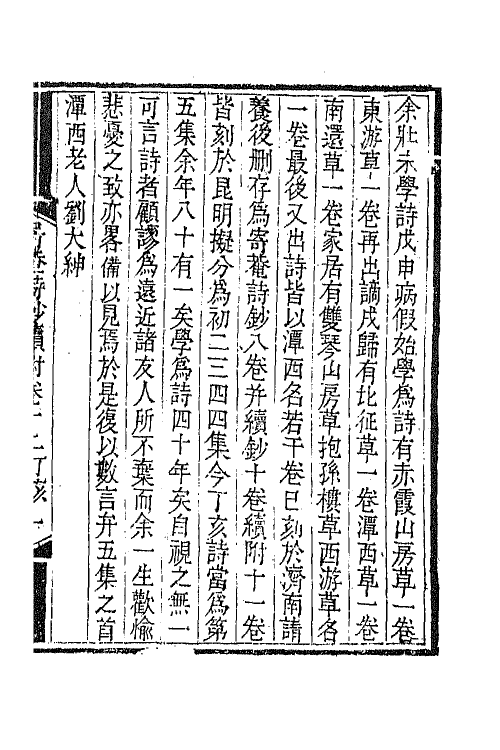 余壯未學詩戊申病假始學爲詩有赤霞山房草一卷
東游草一卷再出謫戍歸有北征草一卷潭西草一卷
南還草一卷家居有雙琴山房草抱孫樓草西游草各
一卷最後又出詩皆以潭西名若干卷巳刻於濟南請
養後刪存爲寄菴詩鈔八卷并續鈔十卷續附十一卷
皆刻於昆明擬分爲初二三四四集今丁亥詩當爲第
五集余年八十有一矣學爲詩四十年矣自視之無一
可言詩者顧謬爲遠近諸友人所不棄而余一生歡愉
悲憂之致亦畧備以見焉於是復以數言弁五集之首
潭西老人劉大紳
寄菴詩鈔續附卷十二丁亥 一